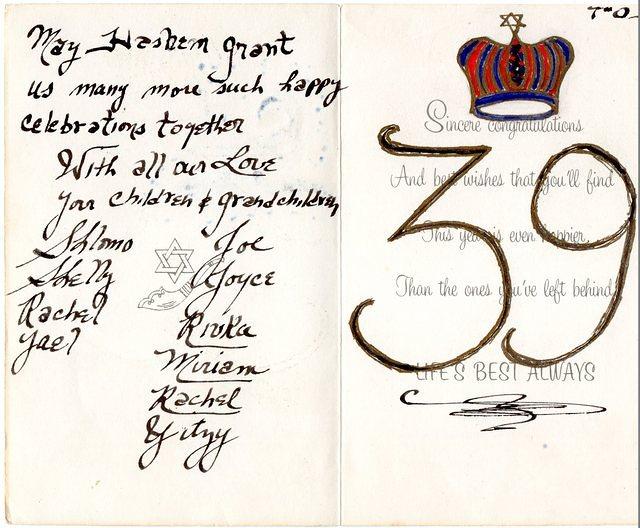 May Hashem grant
us many more such happy
celebrations together
With all our Love
your children & grandchildren
Shlomo
Shelly
Rachel
Yael
Joe
Joyce
Rivka
Miriam
Rachel
Yitzy
Sincere congratulations
And best wishes that you'll find
This year is even happier,
Than the ones you've left behind
LIFE'S BEST ALWAYS
39